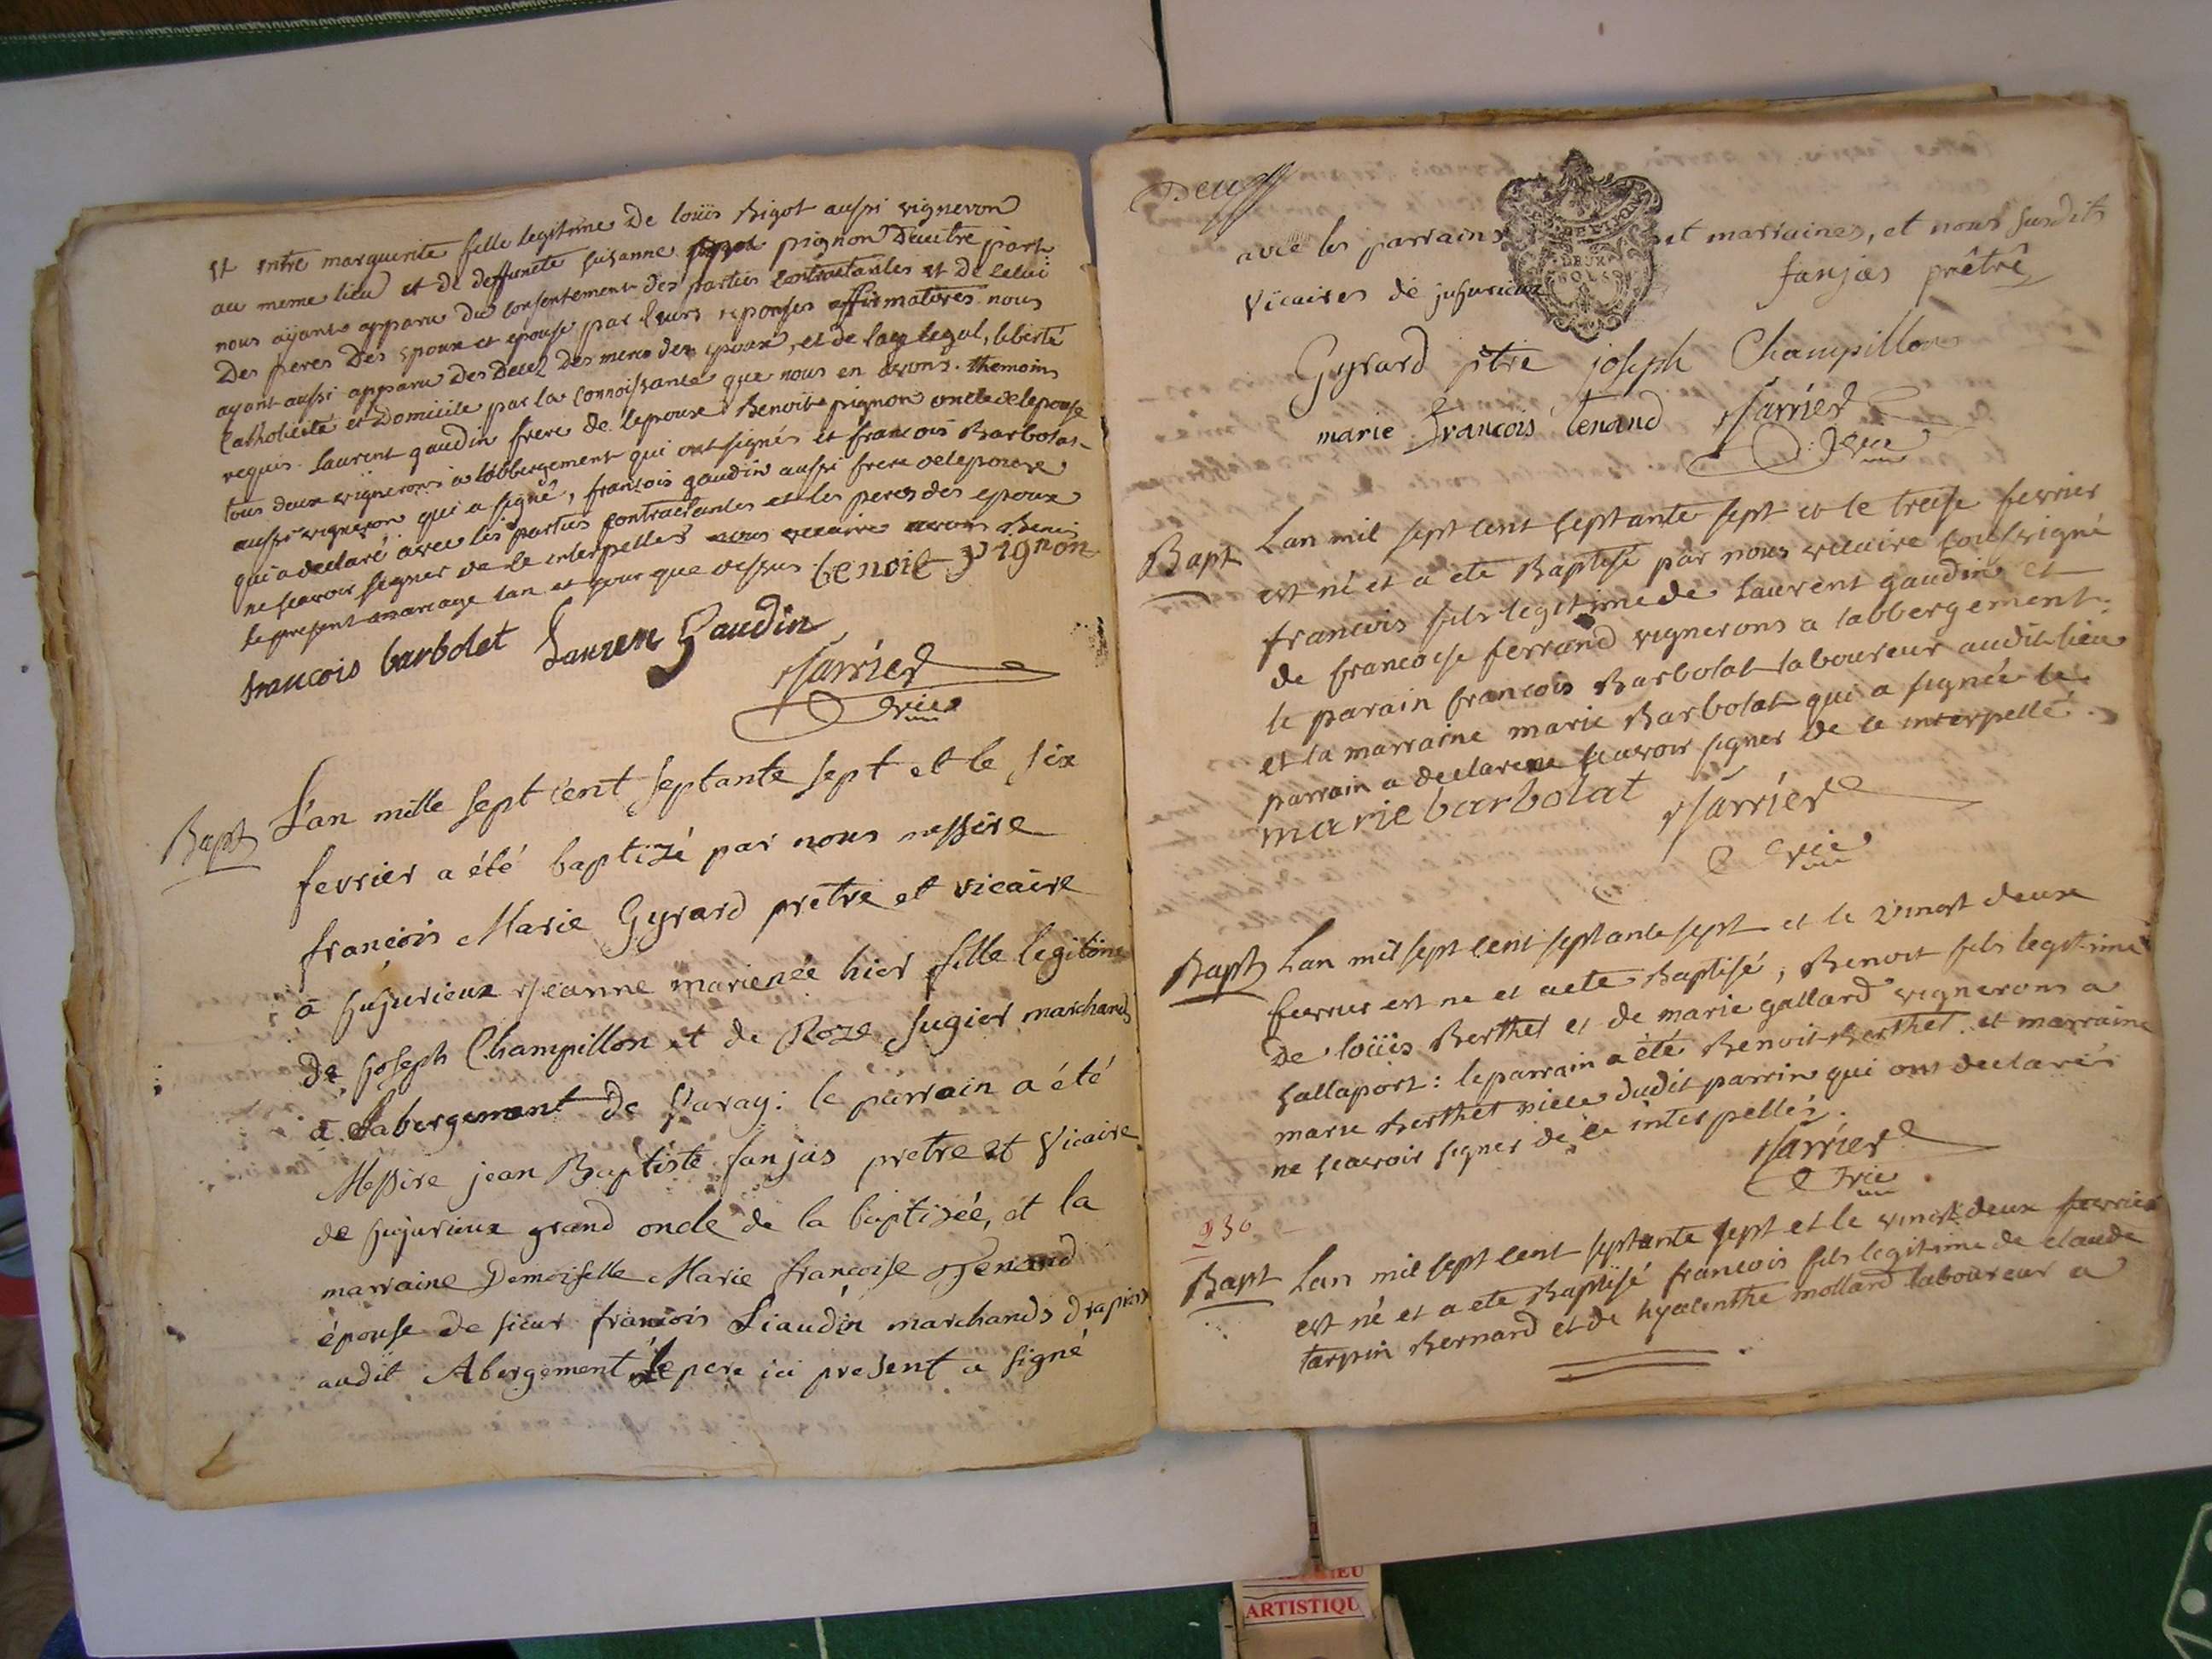 et entre marguerite fille legitime De loüis Bigot aussi vigneron
au meme lieu et de deffuncte susanne pignon D'autre part
nous aÿant apparu du consentement des parties contractantes et de celui
Des peres Des epoux et epouse par leurs reponses affirmatives nous
ayant aussi apparu Des Decez Des meres des epoux, et de lage legal, liberté
Catholicité et Domicile par la connoissance que nous en avons. themoins
requis Laurent gaudin frere de lepoux Benoit pignon oncle de lepouse
tous deux vignerons a labbergement qui ont signés et francois Barbolat
aussi vigneron qui a signé, francois gaudin aussi frere de lepoux
qui a declaré avec les parties contractantes et les peres des epoux
ne scavoir signer de ce interpellés nous vicaire avons Benis
le present mariage lan et jour que dessus benoit pignon
francois barbolet Lauren Gaudin
Jarrier
vic
Bapt L'an mille sept cent septante sept et le six
fevrier a été baptizé par nous messire
françois Marie Gyrard prêtre et vicaire
à Jujurieux Jeanne marie née hier fille legitime
de Joseph Champillon et de Roze Jugier marchands
à Labergement de Varay: le parrain a été
Messire jean Baptiste fanjas pretre et Vicaire
de Jujurieux grand oncle de la baptizée, et la
marraine Demoiselle Marie françoise Tenand
épouse de sieur françois Liaudin marchands drapiers
audit Abergement le pere ici present a signé
Deux
avec les parrains et marraines, et nous susdits
Vicaires de jujurieux fanjas prêtre
DEUX SOLS
Gyrard ptre joseph Champillon
marie François tenand Jarrier
vic
Bapt Lan mil sept cent septante sept et le treise fevrier
est né et a ete Baptisé par nous vicaire soussigné
francois fils legitime de Laurent gaudin et
de francoise ferrand vignerons a labbergement.
le parain francois Barbolat laboureur audit lieu
et la marraine marie Barbolat qui a signée le
parrain a declare ne scavoir signer de ce interpellé.
marie barbolat Jarrier
vic
Bapt Lan mil sept cent septante sept et le vingt deux
fevrier est ne et a ete Baptisé, Benoit fils legitime
De loüis Berthet et de marie gallard vignerons a
Sallaport: le parrain a été Benoit Berthet et marraine
marie berthet niece dudit parrin qui ont declarés
ne scavoir signer de ce interpellés.
Jarrier
vic
230
Bapt Lan mil sept cent septante sept et le vingt deux fevrier
est né et a ete Baptisé francois fils legitime de claude
tarpin Bernard et de hyacinthe mollard laboureur a